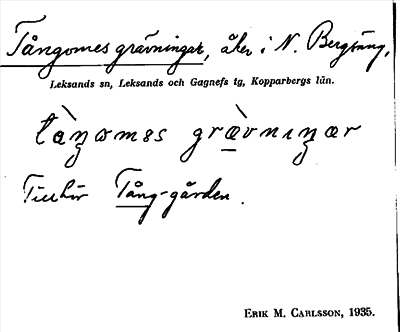 Tångomesgrävningar, åker i N. Bergsäng,
Leksands sn, Leksands och Gagnefs tg, Kopparbergs län.
Tillhör Tång-gården.
ERIK M. CARLSSON, 1935.